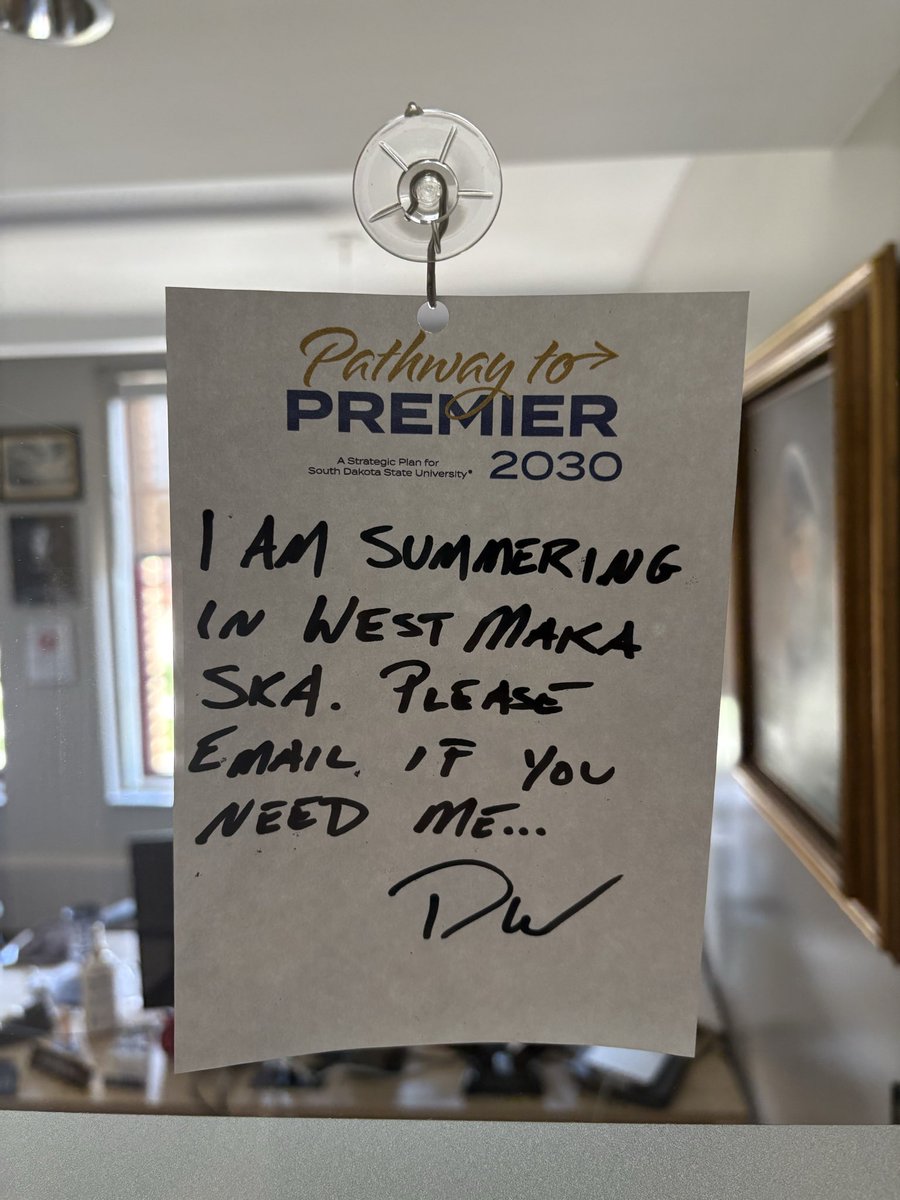 Pathway to
PREMIER
A Strategic Plan for
South Dakota State University®
2030
I AM SUMMERING
IN WEST MAKA
SKA. PLEASE
EMAIL IF YOU
NEED ME...
DW